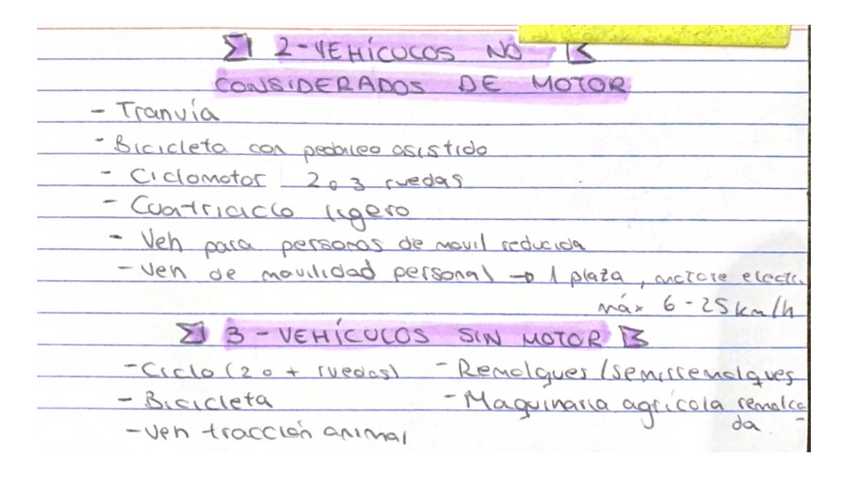 2-VEHÍCULOS NO
CONSIDERADOS DE MOTOR
- Tranvía
- Bicicleta con pedaleo asistido
- Ciclomotor 2 o 3 ruedas
- Cuatriciclo ligero
- Veh para personas de movil reducida
- Veh de movilidad personal → 1 plaza, motore electri
máx 6-25 km/h
3-VEHÍCULOS SIN MOTOR
- Ciclo (2 o + ruedas) - Remolques/Semirremolques
- Bicicleta - Maquinaria agrícola remolca
- Veh tracción animal da